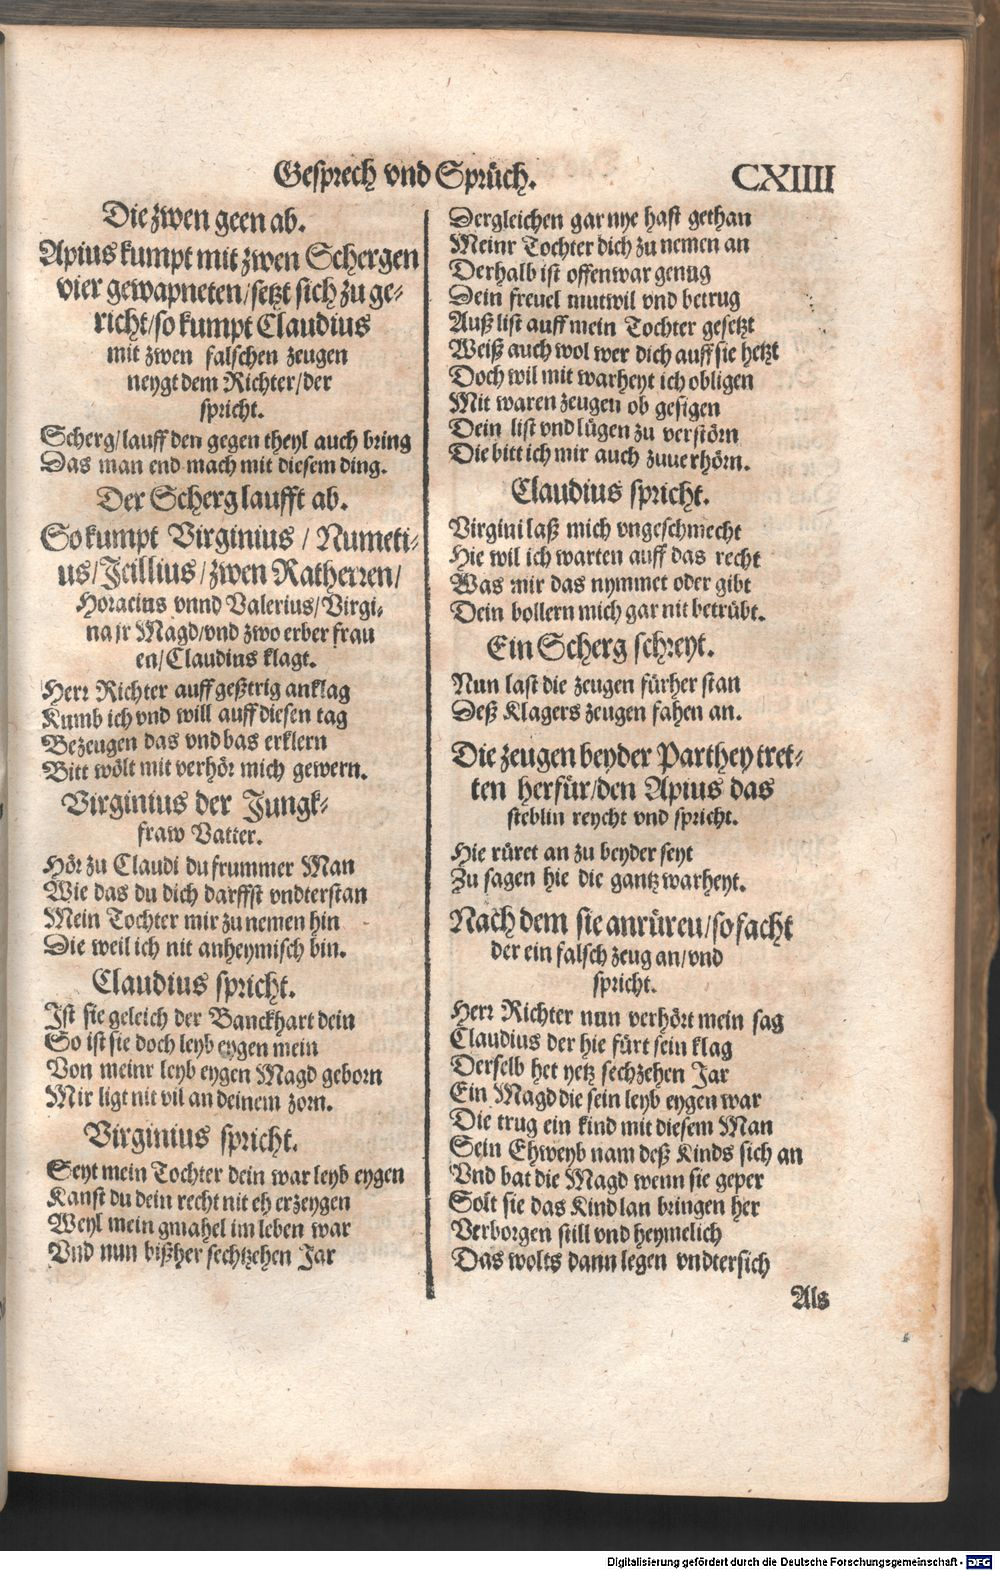 Gesprech vnd Sprüch. CXIIII
Die zwen geen ab.
Apius kumpt mit zwen Schergen
vier gewapneten/setzt sich zu ge-
richt/so kumpt Claudius
mit zwen falschen zeugen
neygt dem Richter/der
spricht.
Scherg/lauff den gegen theyl auch bring
Das man end mach mit diesem ding.
Der Scherg laufft ab.
So kumpt Virginius / Numeti-
us/Icillius/zwen Ratherren/
Horacius vnnd Valerius/Virgi-
na jr Magd/vnd zwo erber frau
en/Claudius klagt.
Herr Richter auff geßtrig anklag
Kumb ich vnd will auff diesen tag
Bezeugen das vnd bas erklern
Bitt wölt mit verhör mich gewern.
Virginius der Jungk-
fraw Vatter.
Hör zu Claudi du frummer Man
Wie das du dich darffst vndterstan
Mein Tochter mir zu nemen hin
Die weil ich nit anheymisch bin.
Claudius spricht.
Ist sie geleich der Banckhart dein
So ist sie doch leyb eygen mein
Von meinr leyb eygen Magd geborn
Mir ligt nit vil an deinem zorn.
Virginius spricht.
Seyt mein Tochter dein war leyb eygen
Kanst du dein recht nit eh erzeygen
Weyl mein gmahel im leben war
Vnd nun bißher sechtzehen Jar
Dergleichen gar nye hast gethan
Meinr Tochter dich zu nemen an
Derhalb ist offenwar genug
Dein freuel mutwil vnd betrug
Auß list auff mein Tochter gesetzt
Weiß auch wol wer dich auff sie hetzt
Doch wil mit warheyt ich obligen
Mit waren zeugen ob gesigen
Dein list vnd lügen zu verstörn
Die bitt ich mir auch zuuerhörn.
Claudius spricht.
Virgini laß mich vngeschmecht
Hie wil ich warten auff das recht
Was mir das nymmet oder gibt
Dein bollern mich gar nit betrübt.
Ein Scherg schreyt.
Nun last die zeugen fürher stan
Deß Klagers zeugen fahen an.
Die zeugen beyder Parthey tret-
ten herfür/den Apius das
steblin reycht vnd spricht.
Hie rüret an zu beyder seyt
Zu sagen hie die gantz warheyt.
Nach dem sie anrüreu/so facht
der ein falsch zeug an/vnd
spricht.
Herr Richter nun verhört mein sag
Claudius der hie fürt sein klag
Derselb het yetz sechzehen Jar
Ein Magd die sein leyb eygen war
Die trug ein kind mit diesem Man
Sein Ehweyb nam deß Kinds sich an
Vnd bat die Magd wenn sie geper
Solt sie das Kind lan bringen her
Verborgen still vnd heymelich
Das wolts dann legen vndtersich
Als
Digitalisierung gefördert durch die Deutsche Forschungsgemeinschaft - DFG